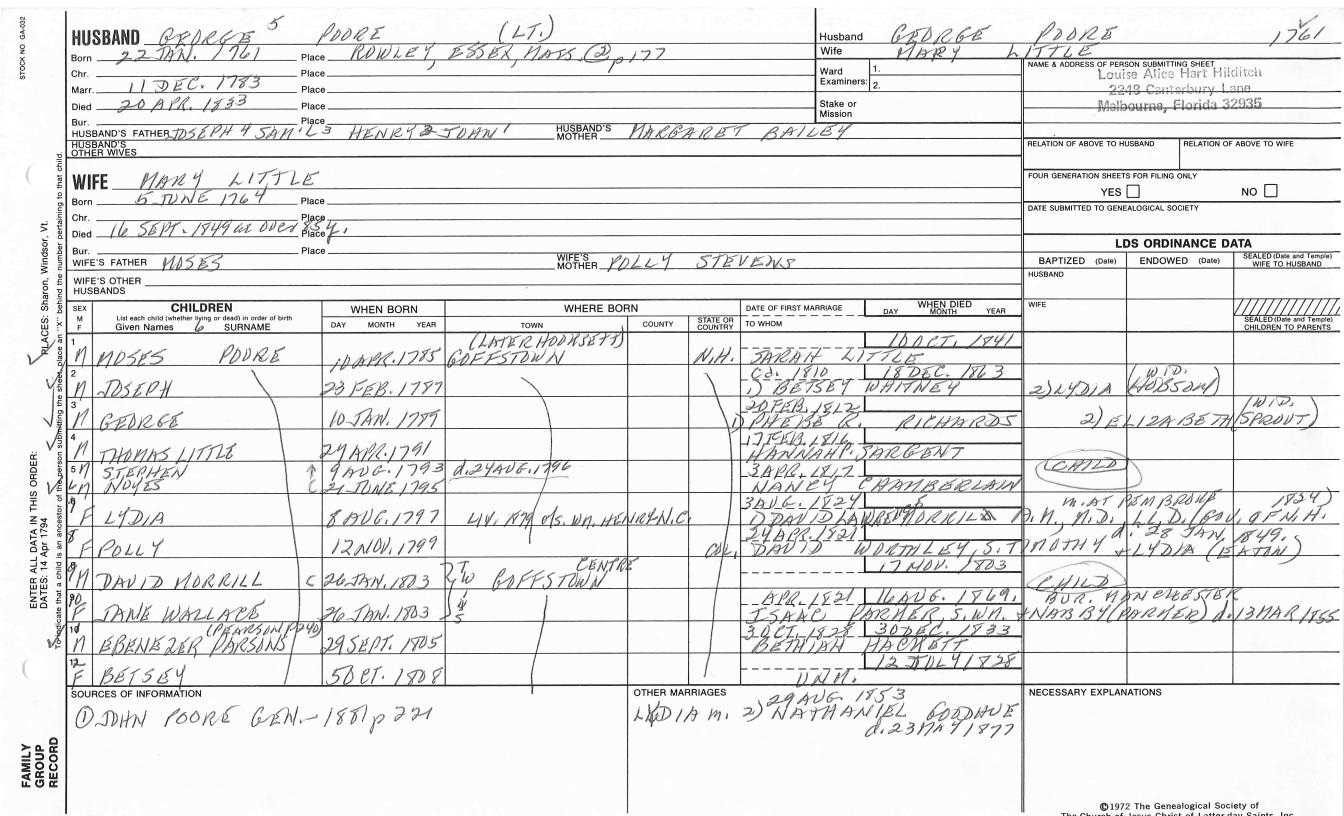 STOCK NO. GA-032
HUSBAND GEORGE 5 POORE (LT.)
Born 22 JAN. 1761 Place ROWLEY, ESSEX, MASS. (2) p 177
Chr. Place
Marr. 11 DEC. 1783 Place
Died 20 APR. 1833 Place
Bur. Place
HUSBAND'S FATHER JOSEPH 4 SAM'L 3 HENRY 2 JOHN 1 HUSBAND'S MOTHER MARGARET BAILEY
HUSBAND'S OTHER WIVES
Husband GEORGE POORE 1761
Wife MARY LITTLE
Ward Examiners: 1.
2.
Stake or Mission
NAME & ADDRESS OF PERSON SUBMITTING SHEET
Louise Alice Hart Hilditch
2248 Canterbury Lane
Melbourne, Florida 32935
RELATION OF ABOVE TO HUSBAND RELATION OF ABOVE TO WIFE
FOUR GENERATION SHEETS FOR FILING ONLY
YES NO
DATE SUBMITTED TO GENEALOGICAL SOCIETY
WIFE MARY LITTLE
Born 5 JUNE 1764 Place
Chr. Place
Died 16 SEPT. 1849 ae over 85 y. Place
Bur. Place
WIFE'S FATHER MOSES WIFE'S MOTHER POLLY STEVENS
WIFE'S OTHER HUSBANDS
LDS ORDINANCE DATA
BAPTIZED (Date) ENDOWED (Date) SEALED (Date and Temple) WIFE TO HUSBAND
HUSBAND
WIFE
SEALED (Date and Temple) CHILDREN TO PARENTS
SEX M F CHILDREN WHEN BORN WHERE BORN DATE OF FIRST MARRIAGE WHEN DIED
List each child (whether living or dead) in order of birth
Given Names 6 SURNAME DAY MONTH YEAR TOWN COUNTY STATE OR COUNTRY TO WHOM DAY MONTH YEAR
1 M MOSES POORE 10 APR. 1785 (LATER HOOKSETT) GOFFSTOWN N.H. SARAH LITTLE 10 OCT. 1841
2 M JOSEPH 23 FEB. 1787 Ca. 1810 18 DEC. 1863 1) BETSEY WHITNEY 2) LYDIA (WID. HOBSON)
3 M GEORGE 10 JAN. 1789 20 FEB. 1812 1) PHEBE R. RICHARDS 2) ELIZABETH (WID. SPROUT)
4 M THOMAS LITTLE 24 APR. 1791 17 FEB. 1816 HANNAH P. SARGENT
5 M STEPHEN 9 AUG. 1793 d. 24 AUG. 1796 (CHILD)
6 M NOYES 21 JUNE 1795 3 APR. 1817 NANCY CHAMBERLAIN
7 F LYDIA 8 AUG. 1797 3 AUG. 1824 1) DAVID MORRILL m. AT PEMBROKE 1824) A.M., M.D., LL.D. (GOV. OF N.H. d. 28 JAN. 1849.
8 F POLLY 12 NOV. 1799 24 APR. 1821 COL. DAVID WORTHLEY, S. TIMOTHY + LYDIA (EATON)
9 M DAVID MORRILL C 26 JAN. 1803 TW'S GOFFSTOWN CENTRE 17 NOV. 1803 (CHILD)
10 F JANE WALLACE 26 JAN. 1803 APR. 1821 16 AUG. 1869. ISAAC PARKER S. WM. + NABBY (PARKER) d. 13 MAR 1855 BUR. MANCHESTER
11 M EBENEZER PARSONS (PEARSON p 240) 29 SEPT. 1805 30 OCT. 1828 30 DEC. 1833 BETHIAH HACKETT
12 F BETSEY 5 OCT. 1808 UNM. 12 JULY 1828
SOURCES OF INFORMATION
(1) JOHN POORE GEN. - 1881 p 221
OTHER MARRIAGES
29 AUG. 1853
LYDIA m. 2) NATHANIEL GOODHUE
d. 23 MAY 1877
NECESSARY EXPLANATIONS
©1972 The Genealogical Society of
The Church of Jesus Christ of Latter-day Saints, Inc.
ENTER ALL DATA IN THIS ORDER:
DATES: 14 Apr 1794
PLACES: Sharon, Windsor, Vt.
To indicate that a child is an ancestor of the person submitting the sheet, place an "X" behind the number pertaining to that child.
FAMILY GROUP RECORD